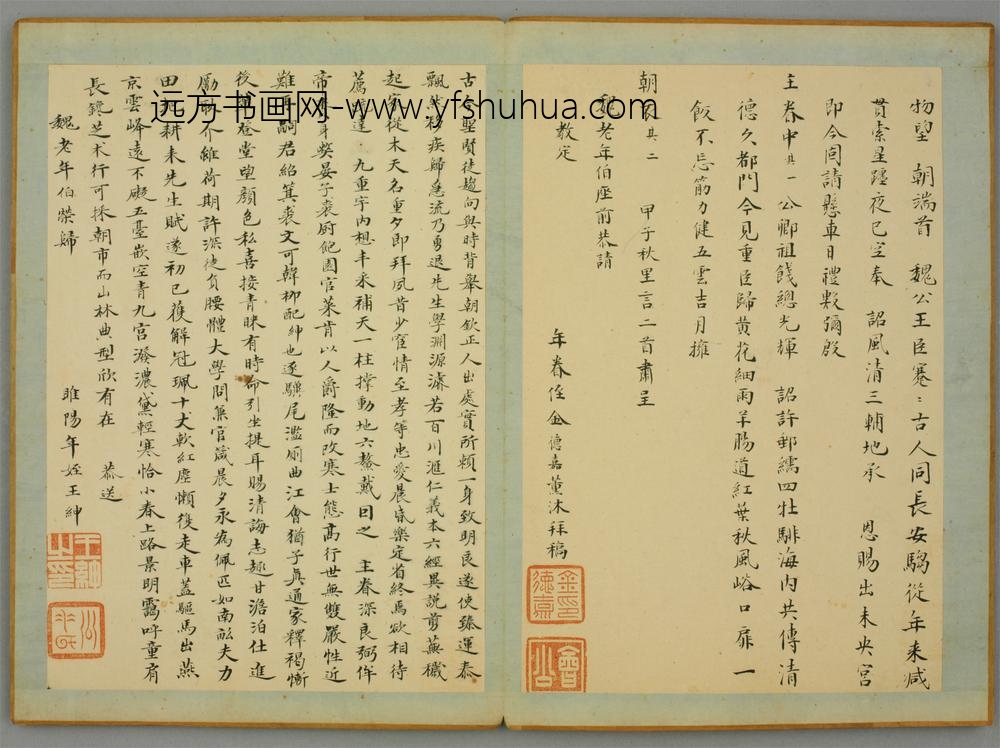 物望 朝端首 魏公王臣蹇〻古人同長安騶從年来减
貫索星躔夜已空奉 詔風清三輔地承 恩賜出未央宮
即今囘請懸車日禮數彌殷
主眷中其一 公卿祖餞總光輝 詔許郵繻四牡騑海内共傳清
德久都門今見重臣歸黄花細雨羊腸道紅葉秋風峪口扉一
飯不忘筋力健五雲吉月擁
朝衣其二 甲子秋里言二首肅呈
魏老年伯座前恭請
教定
年眷侄金德嘉薰沐拜稿
金德嘉印
會公
古今聖賢徒趨向與時背舉朝欽正人出處實所頼一身致明良遂使臻運泰
飄然移疾歸急流乃勇退先生學淵源濬若百川滙仁義本六經異説剪蕪穢
起家從木天名重夕即拜夙昔少宦情至孝等忠愛晨昏樂定省終焉欲相待
薦 達 九重宇内想丰采補天一柱撑動地六鰲戴曰之 主眷深良弼侔
帝 身癸晏子裘廚飽園官菜肯以人爵隆而改寒士態高行世無雙嚴性近
難再嗣君紹箕裘文可韓柳配紳也逐驥尾濫厠曲江會猶子真通家釋褐慚
後 登堂望顔色私喜接青眯有時命引坐提耳賜清誨志趣甘澹泊仕進
勵 介維荷期許深徒負腰軆大學問兼官箴晨夕永為佩匹如南畝夫力
田 耕耒先生賦遂初已獲解冠珮十丈軟紅塵懶復走車蓋驅馬出燕
京雲峰遠不礙五臺嵌空青九宮潑濃黛輕寒恰小春上路景明靄呼童肩
長鑱芝术行可採朝市而山林典型欣有在 恭送
魏老年伯榮歸 睢陽年姪王紳
王紳之印
远方书画网-www.yfshuhua.com